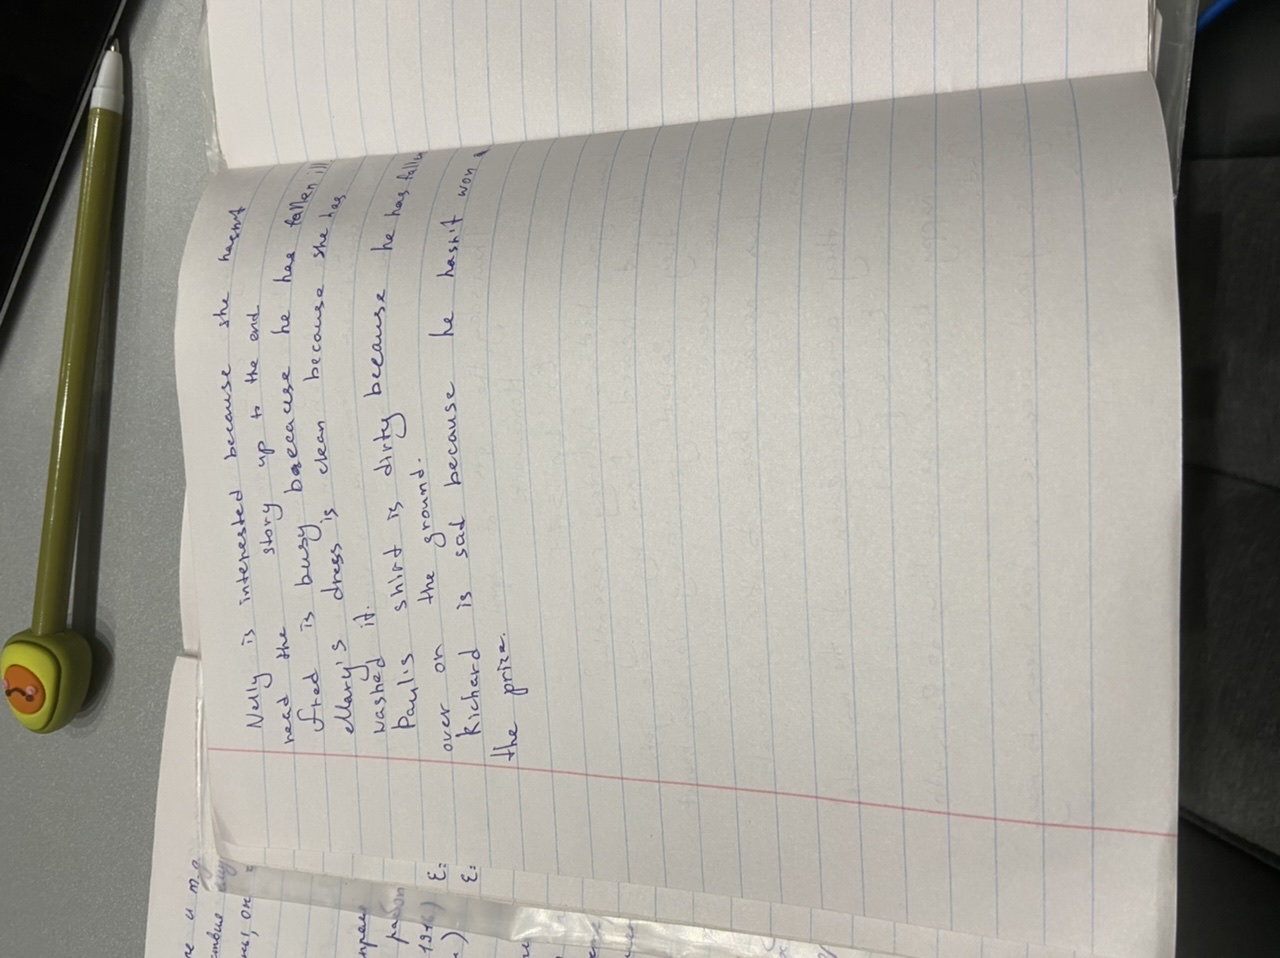 Nelly is interested because she hasn't
read the story up to the end
Fred is busy because he has fallen ill
Mary's dress is clean because she has
washed it.
Paul's shirt is dirty because he has fallen
over on the ground.
Richard is sad because he hasn't won
the prize.